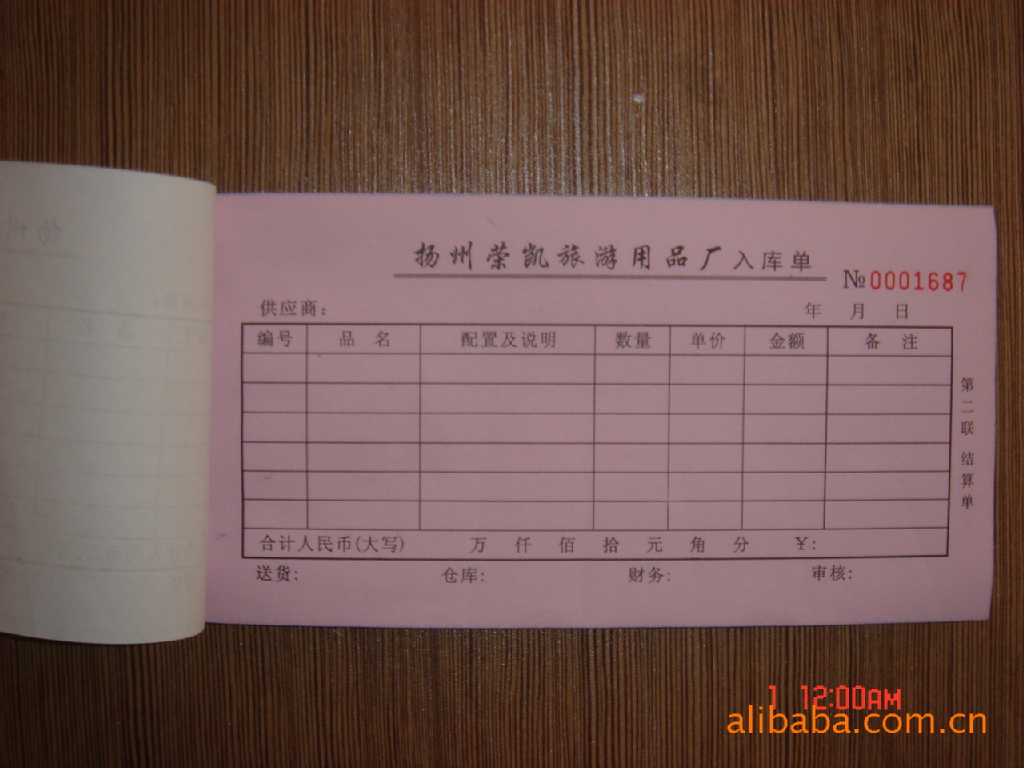 扬州荣凯旅游用品厂入库单
№0001687
供应商： 年 月 日
编号 品名 配置及说明 数量 单价 金额 备注
合计人民币(大写) 万 仟 佰 拾 元 角 分 ￥:
送货: 仓库: 财务: 审核:
第二联 结算单
1 12:00AM
alibaba.com.cn